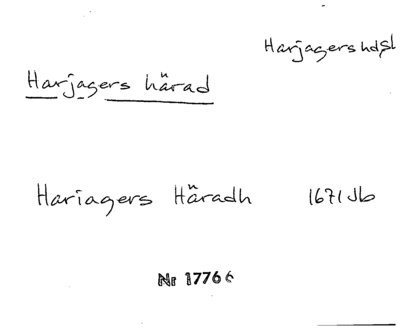 Harjagers hdsl
Harjagers härad
Hariagers Häradh 1671 Jb
Nr 17766